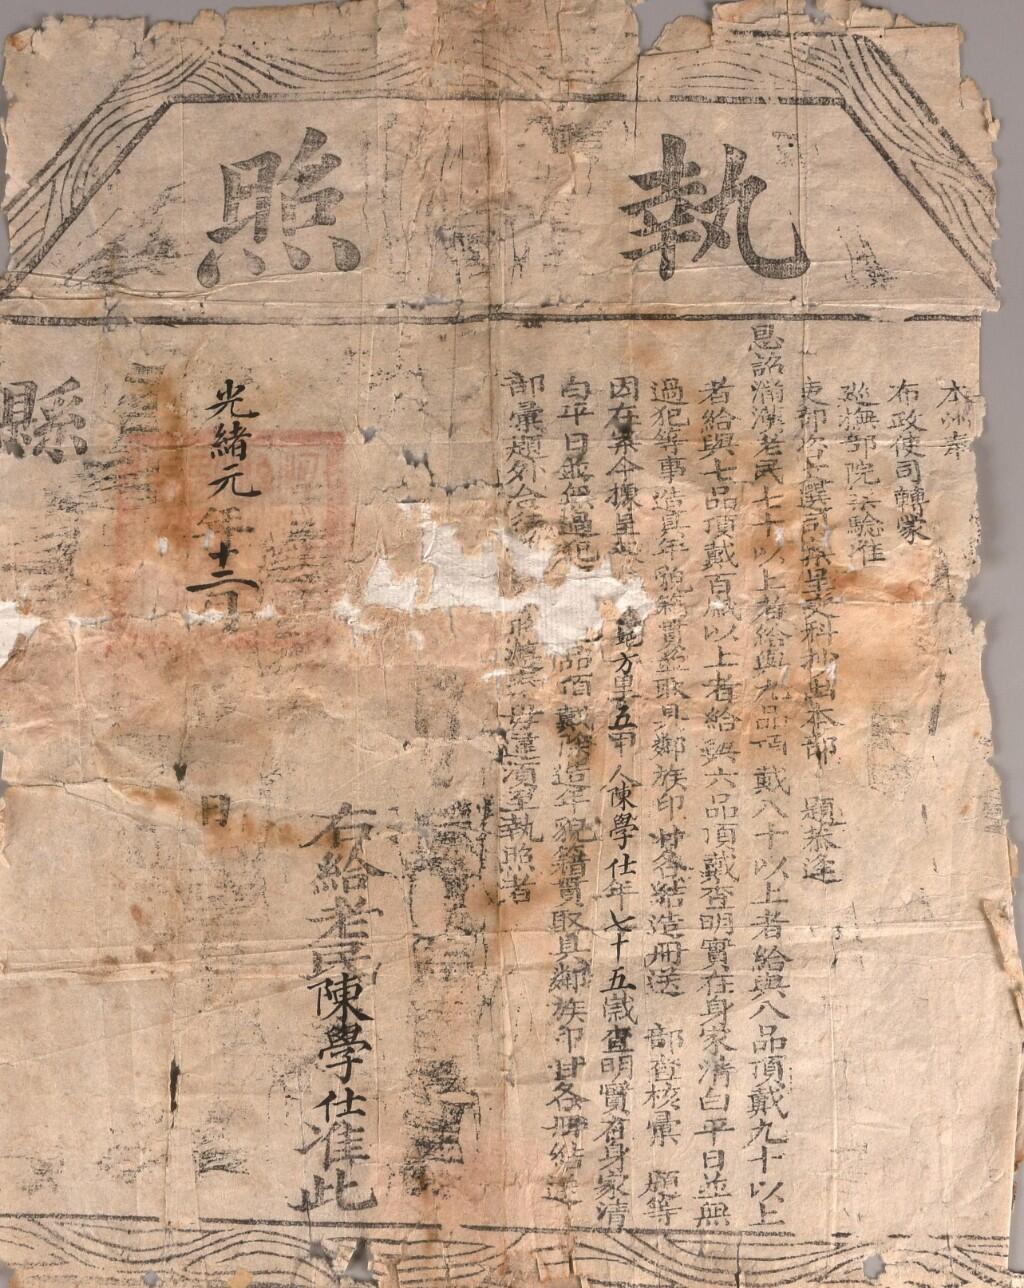 執照
本州奉
布政使司轉蒙
巡撫部院法驗准
吏部咨文選司案呈吏科抄出本部 題恭逢
恩詔滿漢老民七十以上者給與九品頂戴八十以上者給與八品頂戴九十以上
者給與七品頂戴百歲以上者給與六品頂戴查明實在身家清白平日並無
過犯等事造具年貌籍貫並取具鄰族印甘各結造冊送 部查核彙 題等
因在案今據呈 方里五甲 人陳學仕年七十五歲查明實在身家清
白平日並無過犯 品頂戴 造年貌籍貫取具鄰族印甘各冊結送
部彙題外合 毋違須至執照者
右給老民陳學仕准此
光緒元年十二月 日
縣